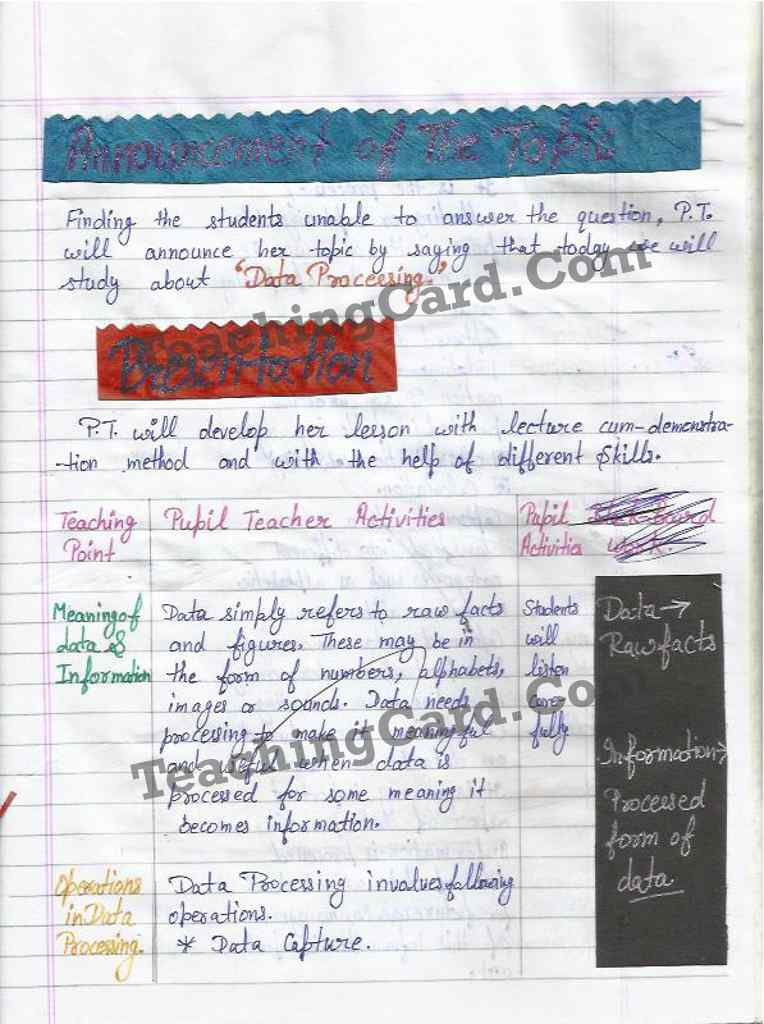 Announcement of The Topic
Finding the students unable to answer the question, P.T.
will announce her topic by saying that today we will
study about "Data Proceesing."
TeachingCard.Com
Presentation
P.T. will develop her lesson with lecture cum-demonstra-
-tion method and with the help of different Skills.
Teaching
Point
Pupil Teacher Activities
Pupil
Activities
work.
Meaning of
data &
Information
Data simply refers to raw facts
and figures. These may be in
the form of numbers, alphabets,
images or sounds. Data needs
processing to make it meaningful
and useful when data is
processed for some meaning it
becomes information.
Students
will
listen
care-
fully
Data →
Raw facts
Information →
Processed
form of
data.
TeachingCard.Com
Operations
in Data
Processing.
Data Processing involves following
operations.
* Data Capture.